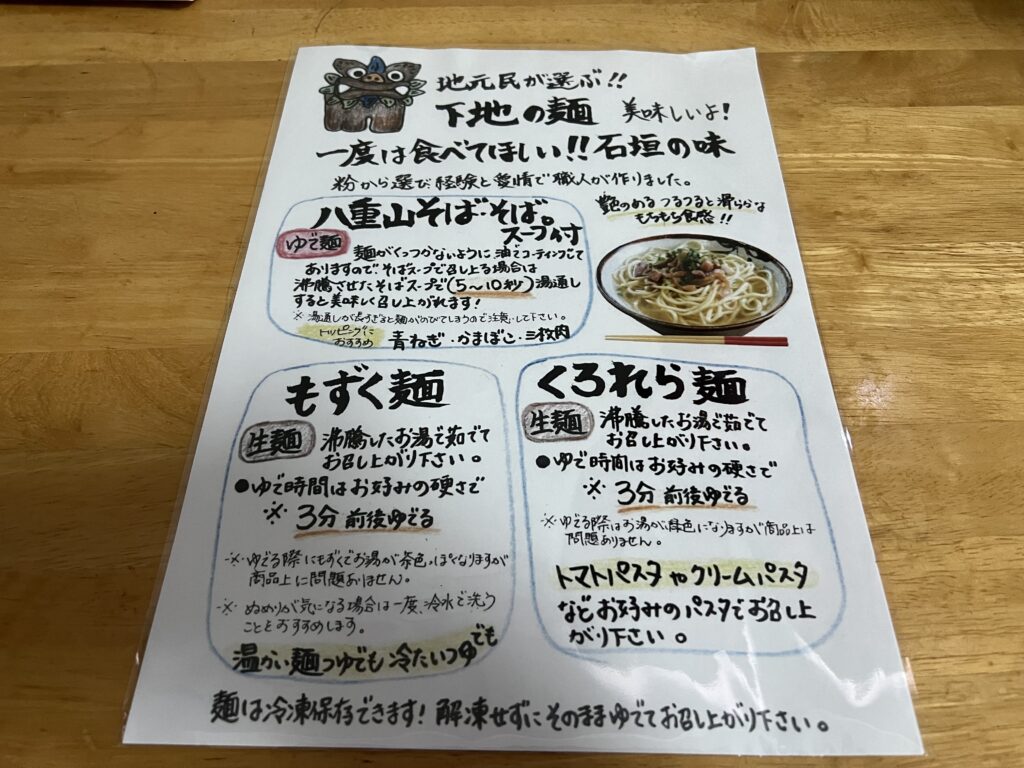 地元民が選ぶ!!
下地の麺 美味しいよ!
一度は食べてほしい!!石垣の味
粉から選び、経験と愛情で職人が作りました。
八重山そば・そば。
スープ付
艶のあるつるつると滑らかな
もちもち食感!!
ゆで麺 麺がくっつかないように油でコーティングして
ありますので、そばスープで召し上る場合は
沸騰させたそばスープで(5〜10秒)湯通し
すると美味しく召し上がれます!
※湯通しが長すぎると麺がのびてしまうので注意して下さい。
トッピングに
おすすめ 青ねぎ・かまぼこ・三枚肉
もずく麺
生麺 沸騰したお湯で茹でて
お召し上がり下さい。
●ゆで時間はお好みの硬さで
※3分前後ゆでる
※ゆでる際にもずくでお湯が茶色っぽくなりますが
商品上に問題ありません。
※ぬめりが気になる場合は一度、冷水で洗う
ことをおすすめします。
温かい麺つゆでも冷たいつゆでも
くろれら麺
生麺 沸騰したお湯で茹でて
お召し上がり下さい。
●ゆで時間はお好みの硬さで
※3分前後ゆでる
※ゆでる際はお湯が緑色になりますが商品上は
問題ありません。
トマトパスタやクリームパスタ
などお好みのパスタでお召し上
がり下さい。
麺は冷凍保存できます!解凍せずにそのままゆでてお召し上がり下さい。